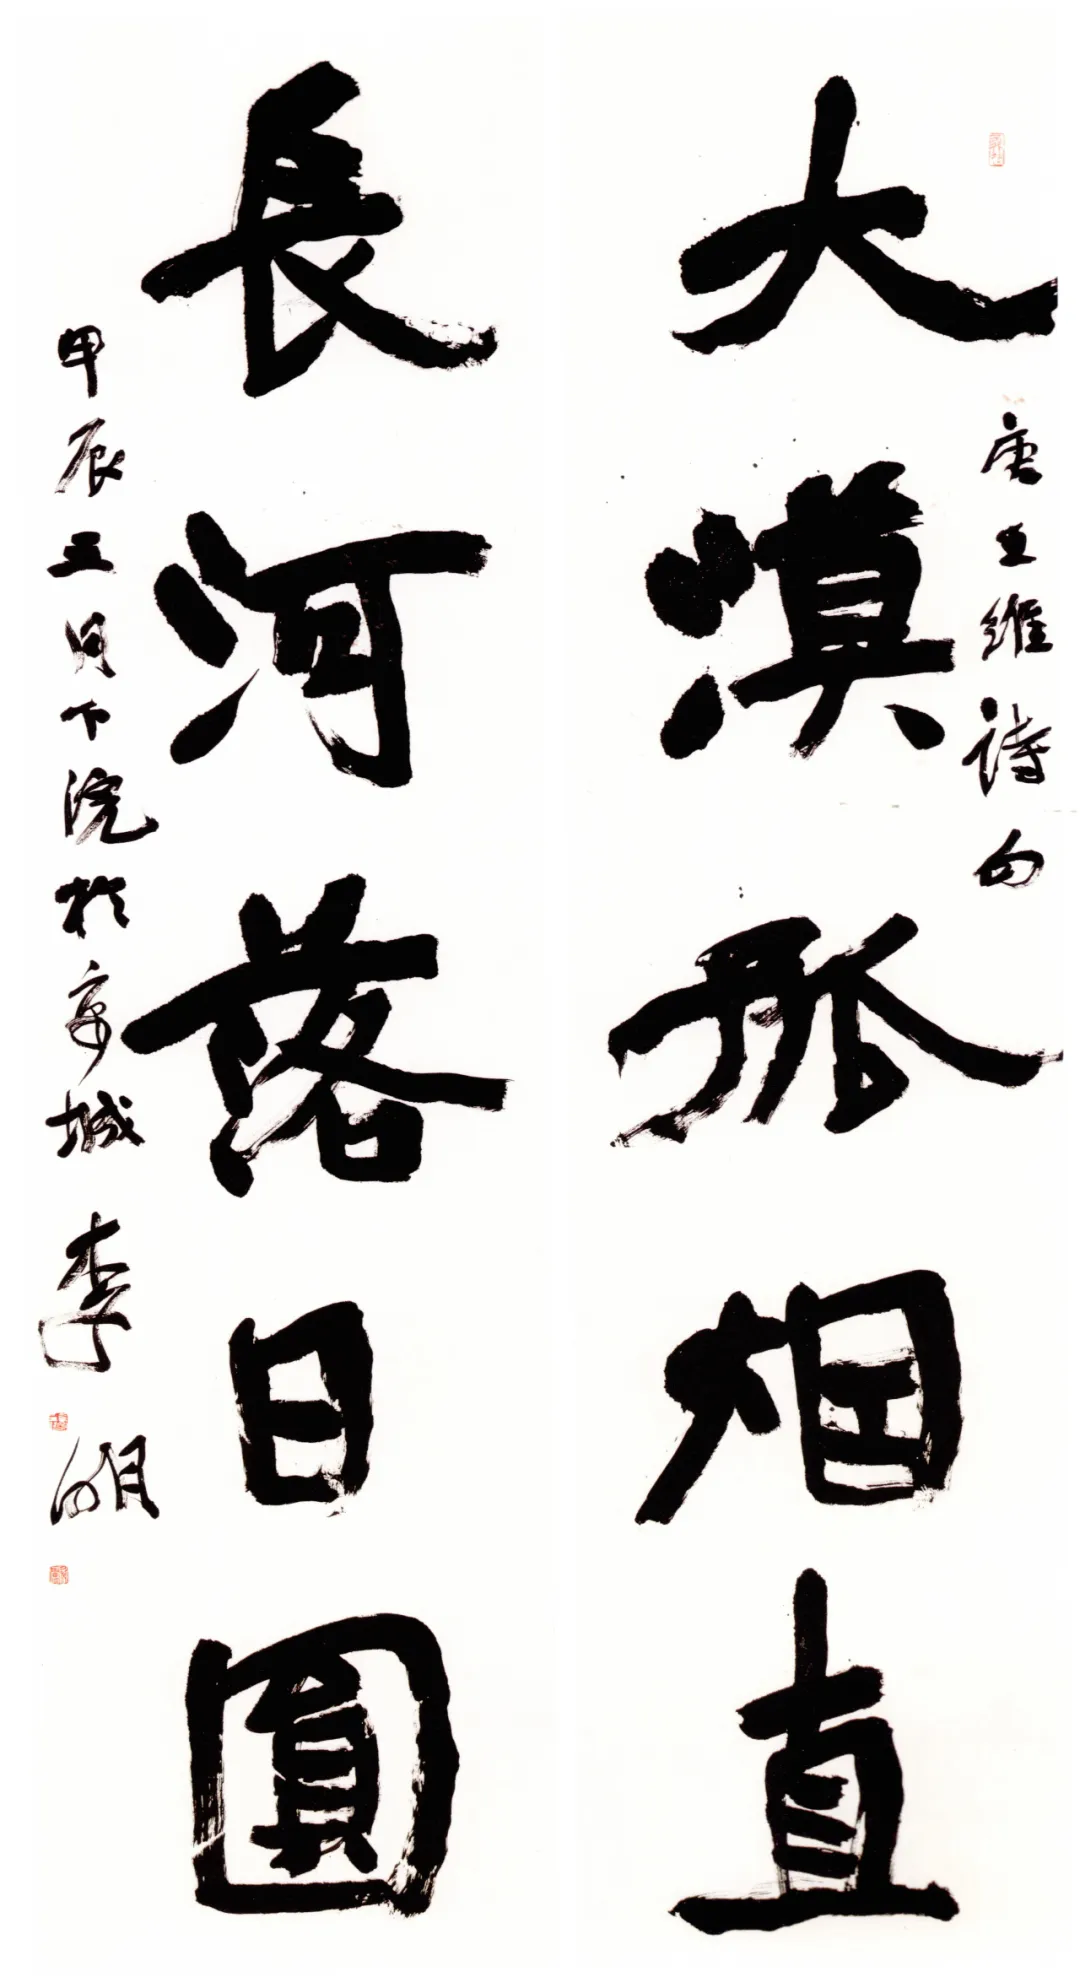 唐王維詩句
大漠孤烟直
長河落日圓
甲辰三月下浣於京城 李明